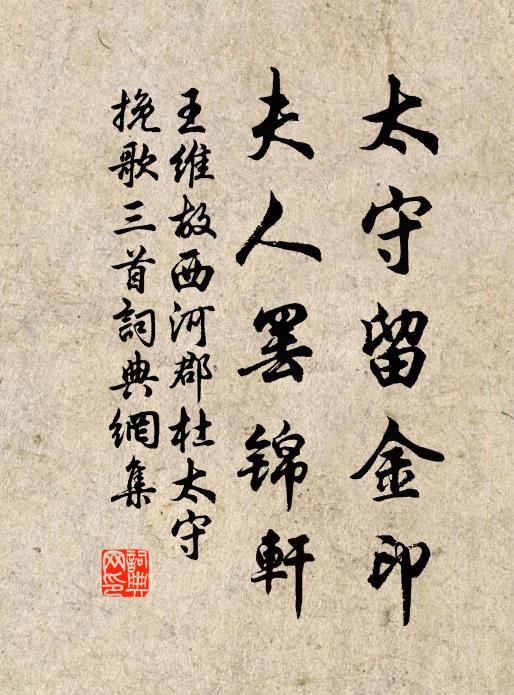 太守留金印
夫人罷錦軒
王維故西河郡杜太守
挽歌三首詞典網集
詞典
网印